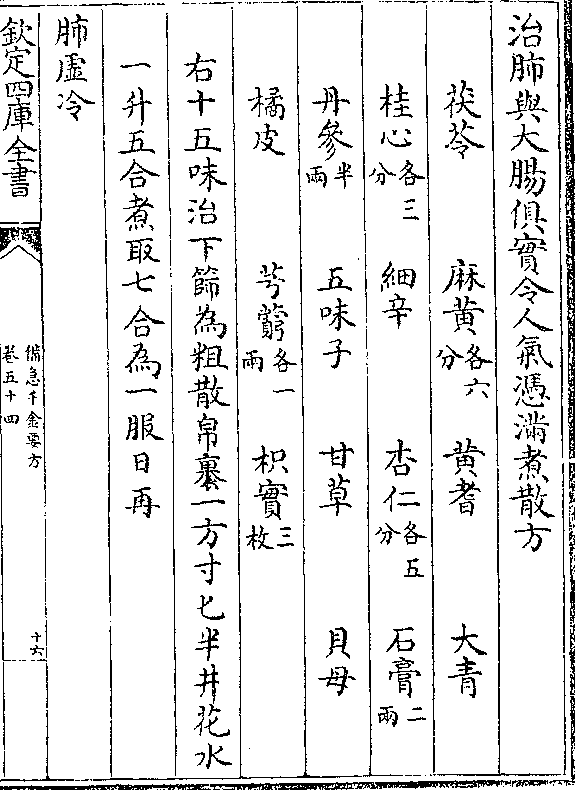 治肺與大腸俱實令人氣憑滿煮散方
茯苓 麻黃各六分 黃耆 大青
桂心各三分 細辛 杏仁各五分 石膏二兩
丹參半兩 五味子 甘草 貝母
橘皮 芎藭各一兩 枳實三枚
右十五味治下篩為粗散帛裹一方寸匕半井花水
一升五合煮取七合為一服日再
肺虛冷
欽定四庫全書
備急千金要方
卷五十四
十六